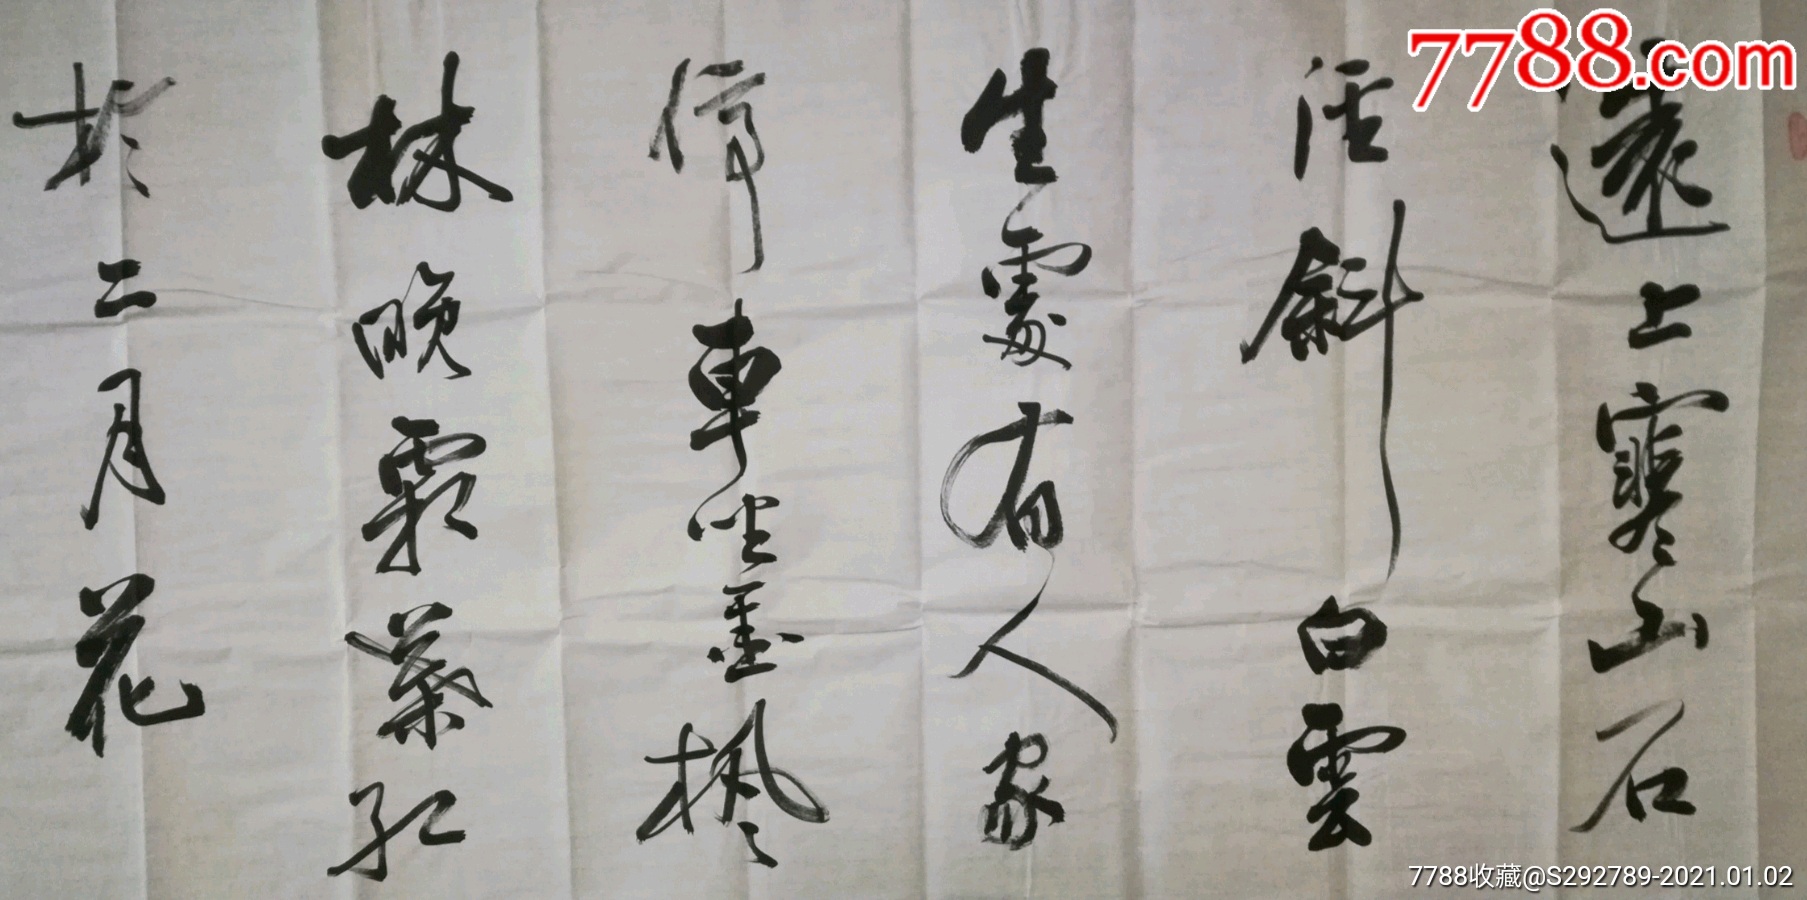 7788.com
遠上寒山石
徑斜白雲
生處有人家
停車坐愛楓
林晚霜葉紅
於二月花
7788收藏@S292789-2021.01.02